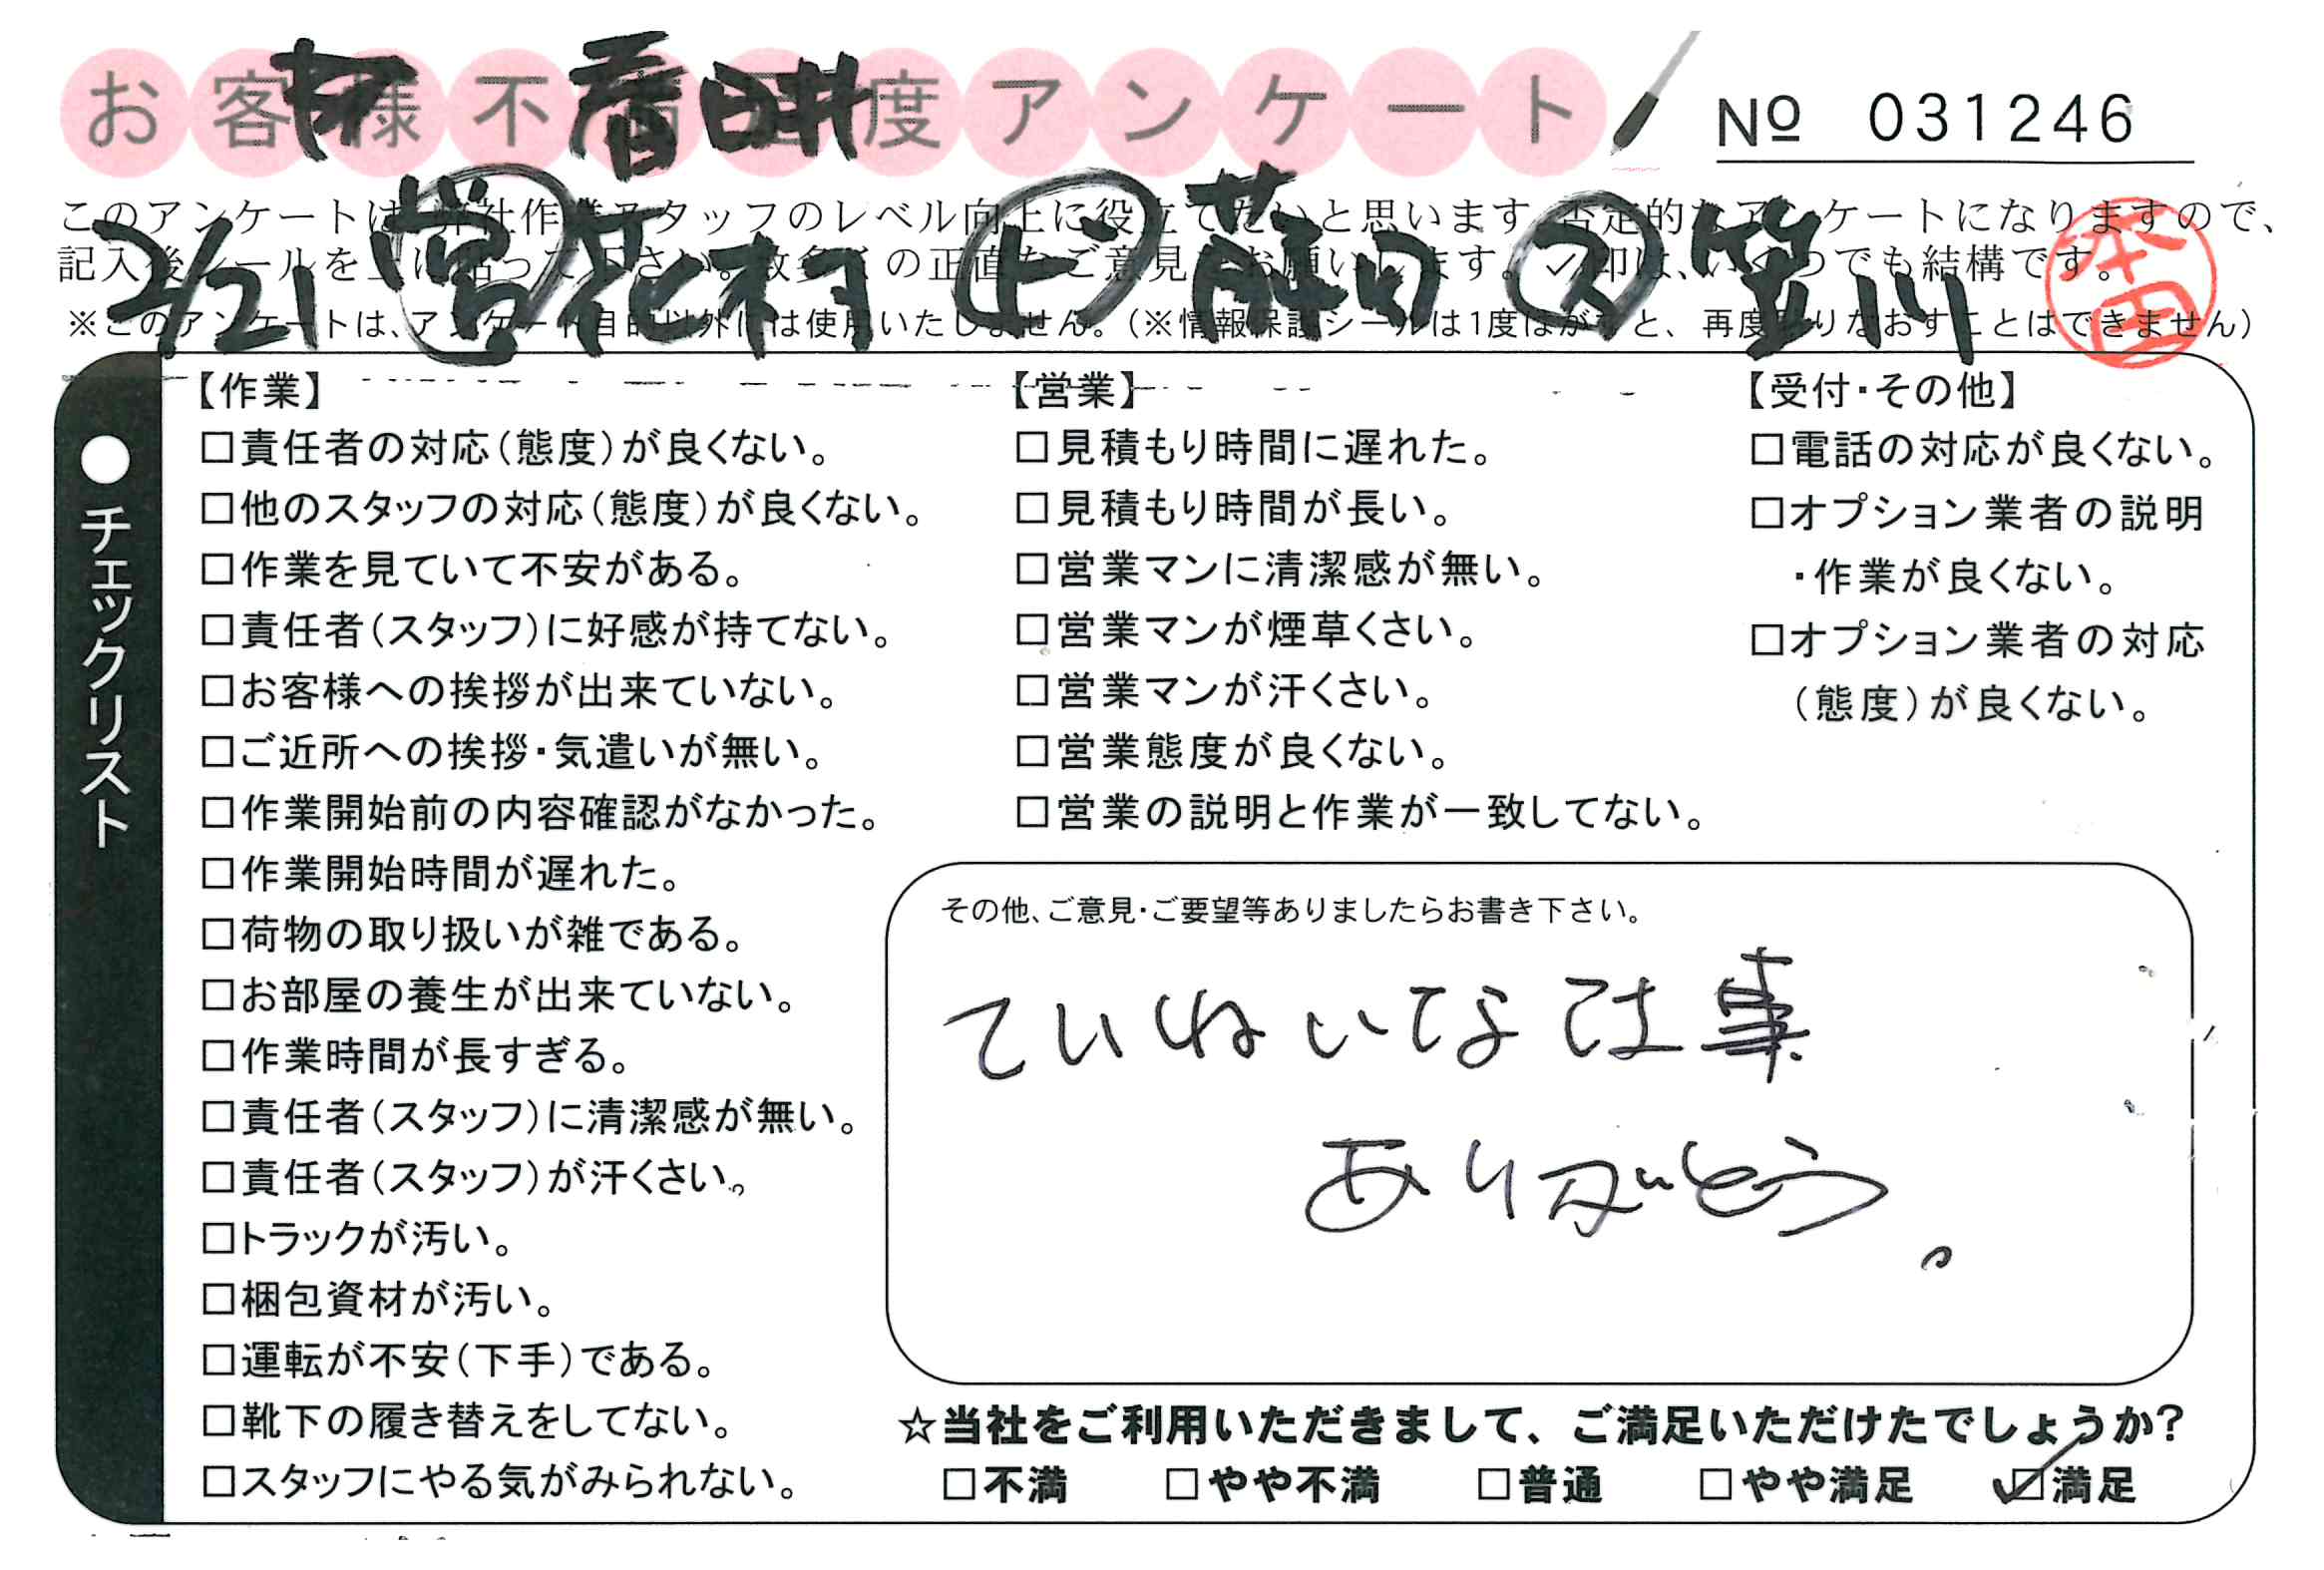 お客様不満足度アンケート
№ 031246
このアンケートは、弊社作業スタッフのレベル向上に役立てたいと思います。否定的なアンケートになりますので、
記入後シールを上に貼って下さい。数多くの正直なご意見をお願いします。✓印は、いくつでも結構です。
※このアンケートは、アンケート目的以外には使用いたしません。(※情報保護シールは1度はがすと、再度貼りなおすことはできません)
2/21 営 花村 ド 藤田 ス 笠川
本田
●チェックリスト
【作業】
□責任者の対応(態度)が良くない。
□他のスタッフの対応(態度)が良くない。
□作業を見ていて不安がある。
□責任者(スタッフ)に好感が持てない。
□お客様への挨拶が出来ていない。
□ご近所への挨拶・気遣いが無い。
□作業開始前の内容確認がなかった。
□作業開始時間が遅れた。
□荷物の取り扱いが雑である。
□お部屋の養生が出来ていない。
□作業時間が長すぎる。
□責任者(スタッフ)に清潔感が無い。
□責任者(スタッフ)が汗くさい。
□トラックが汚い。
□梱包資材が汚い。
□運転が不安(下手)である。
□靴下の履き替えをしてない。
□スタッフにやる気がみられない。
【営業】
□見積もり時間に遅れた。
□見積もり時間が長い。
□営業マンに清潔感が無い。
□営業マンが煙草くさい。
□営業マンが汗くさい。
□営業態度が良くない。
□営業の説明と作業が一致してない。
【受付・その他】
□電話の対応が良くない。
□オプション業者の説明
・作業が良くない。
□オプション業者の対応
(態度)が良くない。
その他、ご意見・ご要望等ありましたらお書き下さい。
ていねいな仕事
ありがとう。
☆当社をご利用いただきまして、ご満足いただけたでしょうか?
□不満 □やや不満 □普通 □やや満足 ☑満足